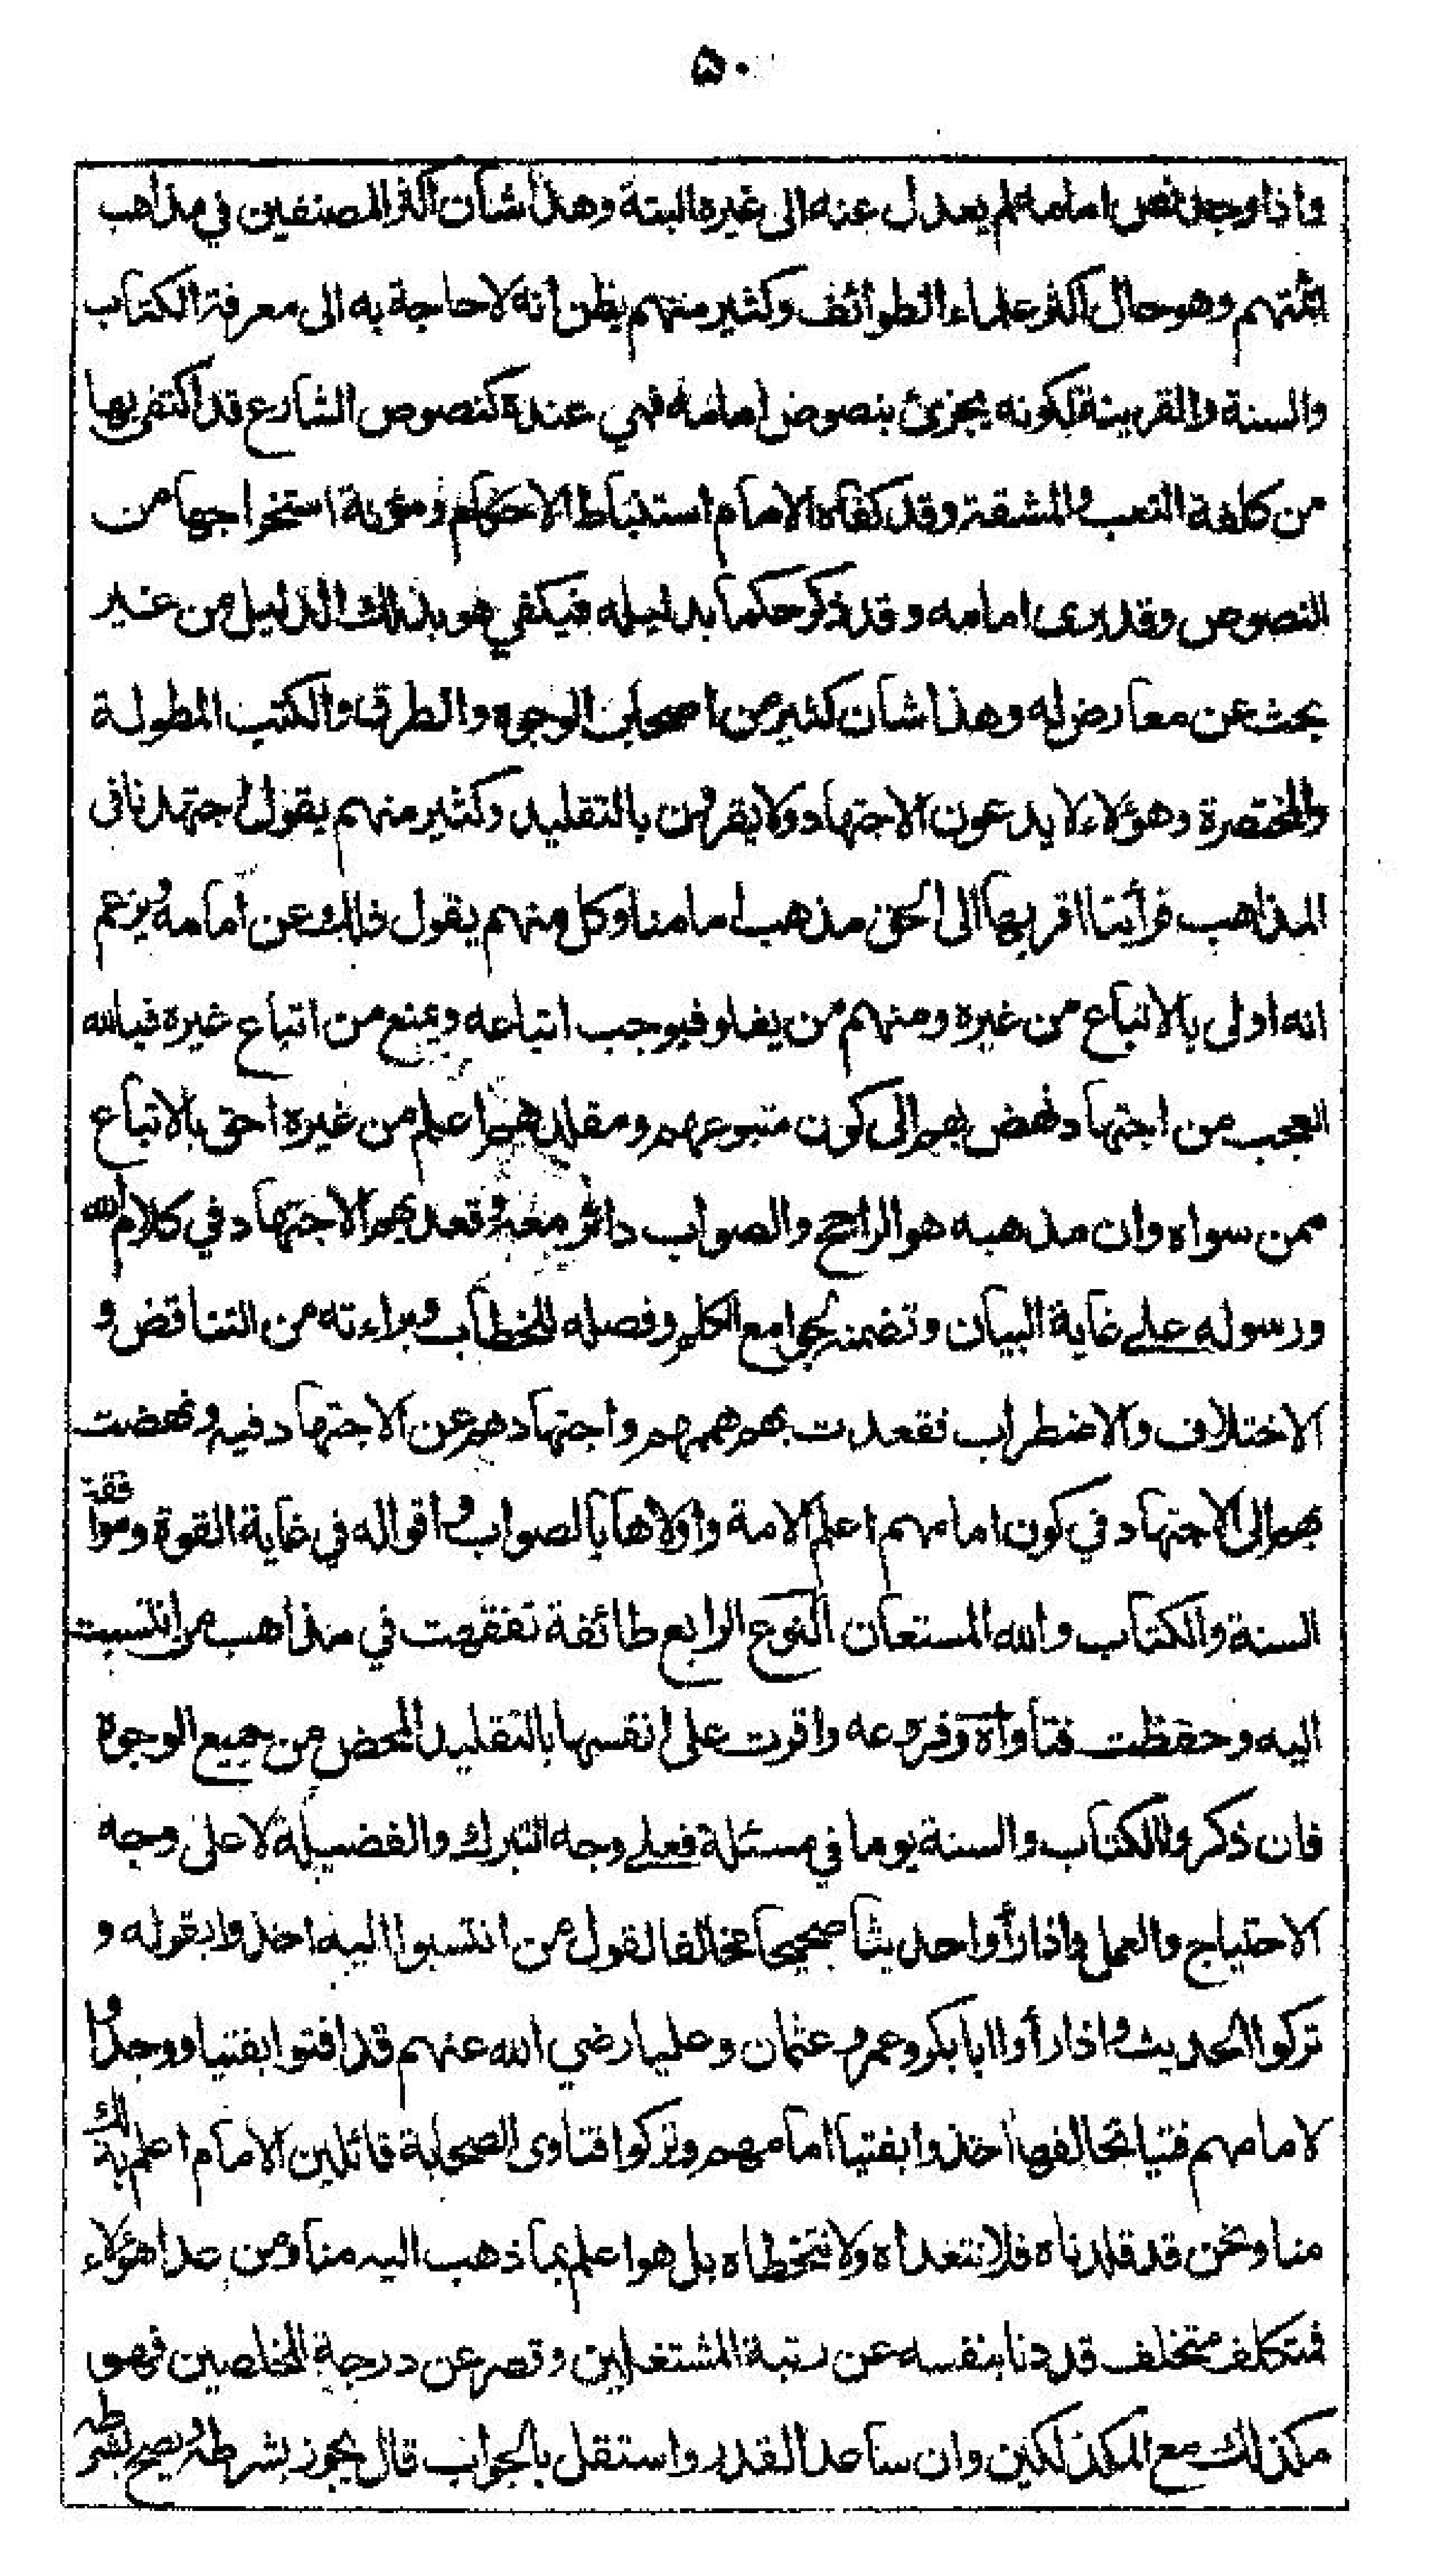 ۵۰
واذا وجد نص امامه لم يعدل عنه الى غيره البتة وهذا شأن اكثر المصنفين في مذاهب
ائمتهم وهو حال اكثر علماء الطوائف وكثير منهم يظن انه لا حاجة به الى معرفة الكتاب
والسنة والقرينة لكونه يجزئ بنصوص امامه فهي عنده كنصوص الشارع قد اكتفى بها
من كلفة التعب والمشقة وقد كفاه الامام استنباط الاحكام ومؤنة استخراجها من
النصوص وقد يرى امامه وقد ذكر حكما بدليله فيكفي هو بذلك الدليل من غير
بحث عن معارض له وهذا شأن كثير من اصحاب الوجوه والطرق والكتب المطولة
والمختصرة وهؤلاء لا يدعون الاجتهاد ولا يقرون بالتقليد وكثير منهم يقول اجتهدنا في
المذاهب فرأينا اقربها الى الحق مذهب امامنا وكل منهم يقول ذلك عن امامه ويزعم
انه اولى بالاتباع من غيره ومنهم من يغلو فيوجب اتباعه ويمنع من اتباع غيره فيالله
العجب من اجتهاد نهض بهم الى كون متبوعهم ومقلدهم اعلم من غيره احق بالاتباع
ممن سواه وان مذهبه هو الراجح والصواب دائر معه وقعد بهم الاجتهاد في كلام الله
ورسوله على غاية البيان وتضمنه لجوامع الكلم وفصله للخطاب وبراءته من التناقض و
الاختلاف والاضطراب فقعدت بهم هممهم واجتهادهم عن الاجتهاد فيه ونهضت
بهم الى الاجتهاد في كون امامهم اعلم الامة واولاها بالصواب واقواله في غاية القوة وموافقة
السنة والكتاب والله المستعان النوع الرابع طائفة تفقهت في مذاهب من انتسبت
اليه وحفظت فتاواه وفروعه واقرت على انفسها بالتقليد المحض من جميع الوجوه
فان ذكروا الكتاب والسنة يوما في مسئلة فعلى وجه التبرك والفضيلة لا على وجه
الاحتياج والعمل واذا رأوا حديثا صحيحا مخالفا لقول من انتسبوا اليه اخذوا بقوله و
تركوا الحديث واذا رأوا ابا بكر وعمر وعثمان وعليا رضي الله عنهم قد افتوا بفتيا ووجدوا
لامامهم فتيا تخالفها اخذوا بفتيا امامهم وتركوا فتاوى الصحابة قائلين الامام اعلم بذلك
منا ونحن قد قلدناه فلا نتعداه ولا نتخطاه بل هو اعلم بما ذهب اليه منا ومن عدا هؤلاء
فمتكلف متخلف قد دنا بنفسه عن رتبة المشتغلين وقصر عن درجة المخلصين فهو
مكذلك مع المكذلكين وان ساعد القدر واستقل بالجواب قال يجوز بشرطه ويصح بشرطه